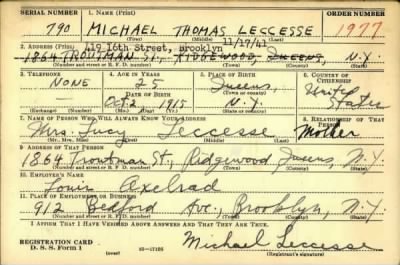 SERIAL NUMBER 1. NAME (Print) ORDER NUMBER
790 MICHAEL THOMAS LECCESSE 1977
(First) (Middle) (Last)
119 16th Street, Brooklyn 11/17/41
2. ADDRESS (Print)
1864 TROUTMAN St., RIDGEWOOD, QUEENS, N.Y.
(Number and street or R. F. D. number) (Town) (County) (State)
3. TELEPHONE 4. AGE IN YEARS 5. PLACE OF BIRTH 6. COUNTRY OF CITIZENSHIP
NONE 25 Queens, United States
DATE OF BIRTH
Oct 2 1915 N.Y.
(Exchange) (Number) (Mo.) (Day) (Yr.) (State or country)
7. NAME OF PERSON WHO WILL ALWAYS KNOW YOUR ADDRESS 8. RELATIONSHIP OF THAT PERSON
Mrs. Lucy Leccesse Mother
(Mr., Mrs., Miss) (First) (Middle) (Last)
9. ADDRESS OF THAT PERSON
1864 Troutman St., Ridgewood Queens, N.Y.
(Number and street or R. F. D. number) (Town) (County) (State)
10. EMPLOYER'S NAME
Louis Axelrad
11. PLACE OF EMPLOYMENT OR BUSINESS
912 Bedford Ave., Brooklyn, N.Y.
(Number and street or R. F. D. number) (Town) (County) (State)
I AFFIRM THAT I HAVE VERIFIED ABOVE ANSWERS AND THAT THEY ARE TRUE.
REGISTRATION CARD
D. S. S. Form 1 16-17105 Michael Leccesse
(over) (Registrant's signature)